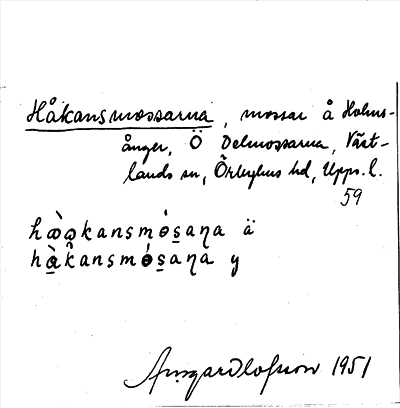 Håkansmossarna, mossar å Holms-
ånger, Ö Delmossarna, Väst-
lands sn, Örbyhus hd, Upps. l.
59
hɷ̀ɷkansmósaɳa ä
hàkansmósaɳa y
Ansgar Olofsson 1951